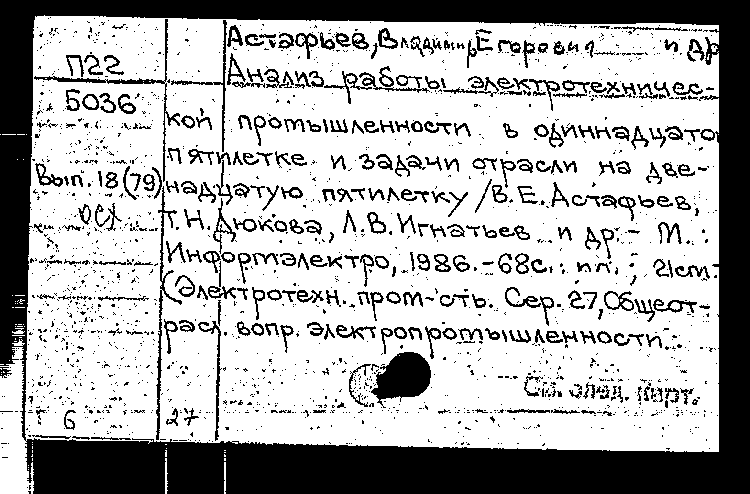 Астафьев, Владимир Егорович и др
П22
Анализ работы электротехничес-
5036
кой промышленности в одиннадцато
пятилетке и задачи отрасли на две-
Вып. 18(79)
надцатую пятилетку / В.Е. Астафьев,
осх
Т.Н. Дюкова, Л.В. Игнатьев и др. - М. :
Информэлектро, 1986. - 68с. : ил. ; 21cm.
(Электротехн. пром-сть. Сер. 27, Общеот-
расл. вопр. электропромышленности.
См. след. карт.
6 27